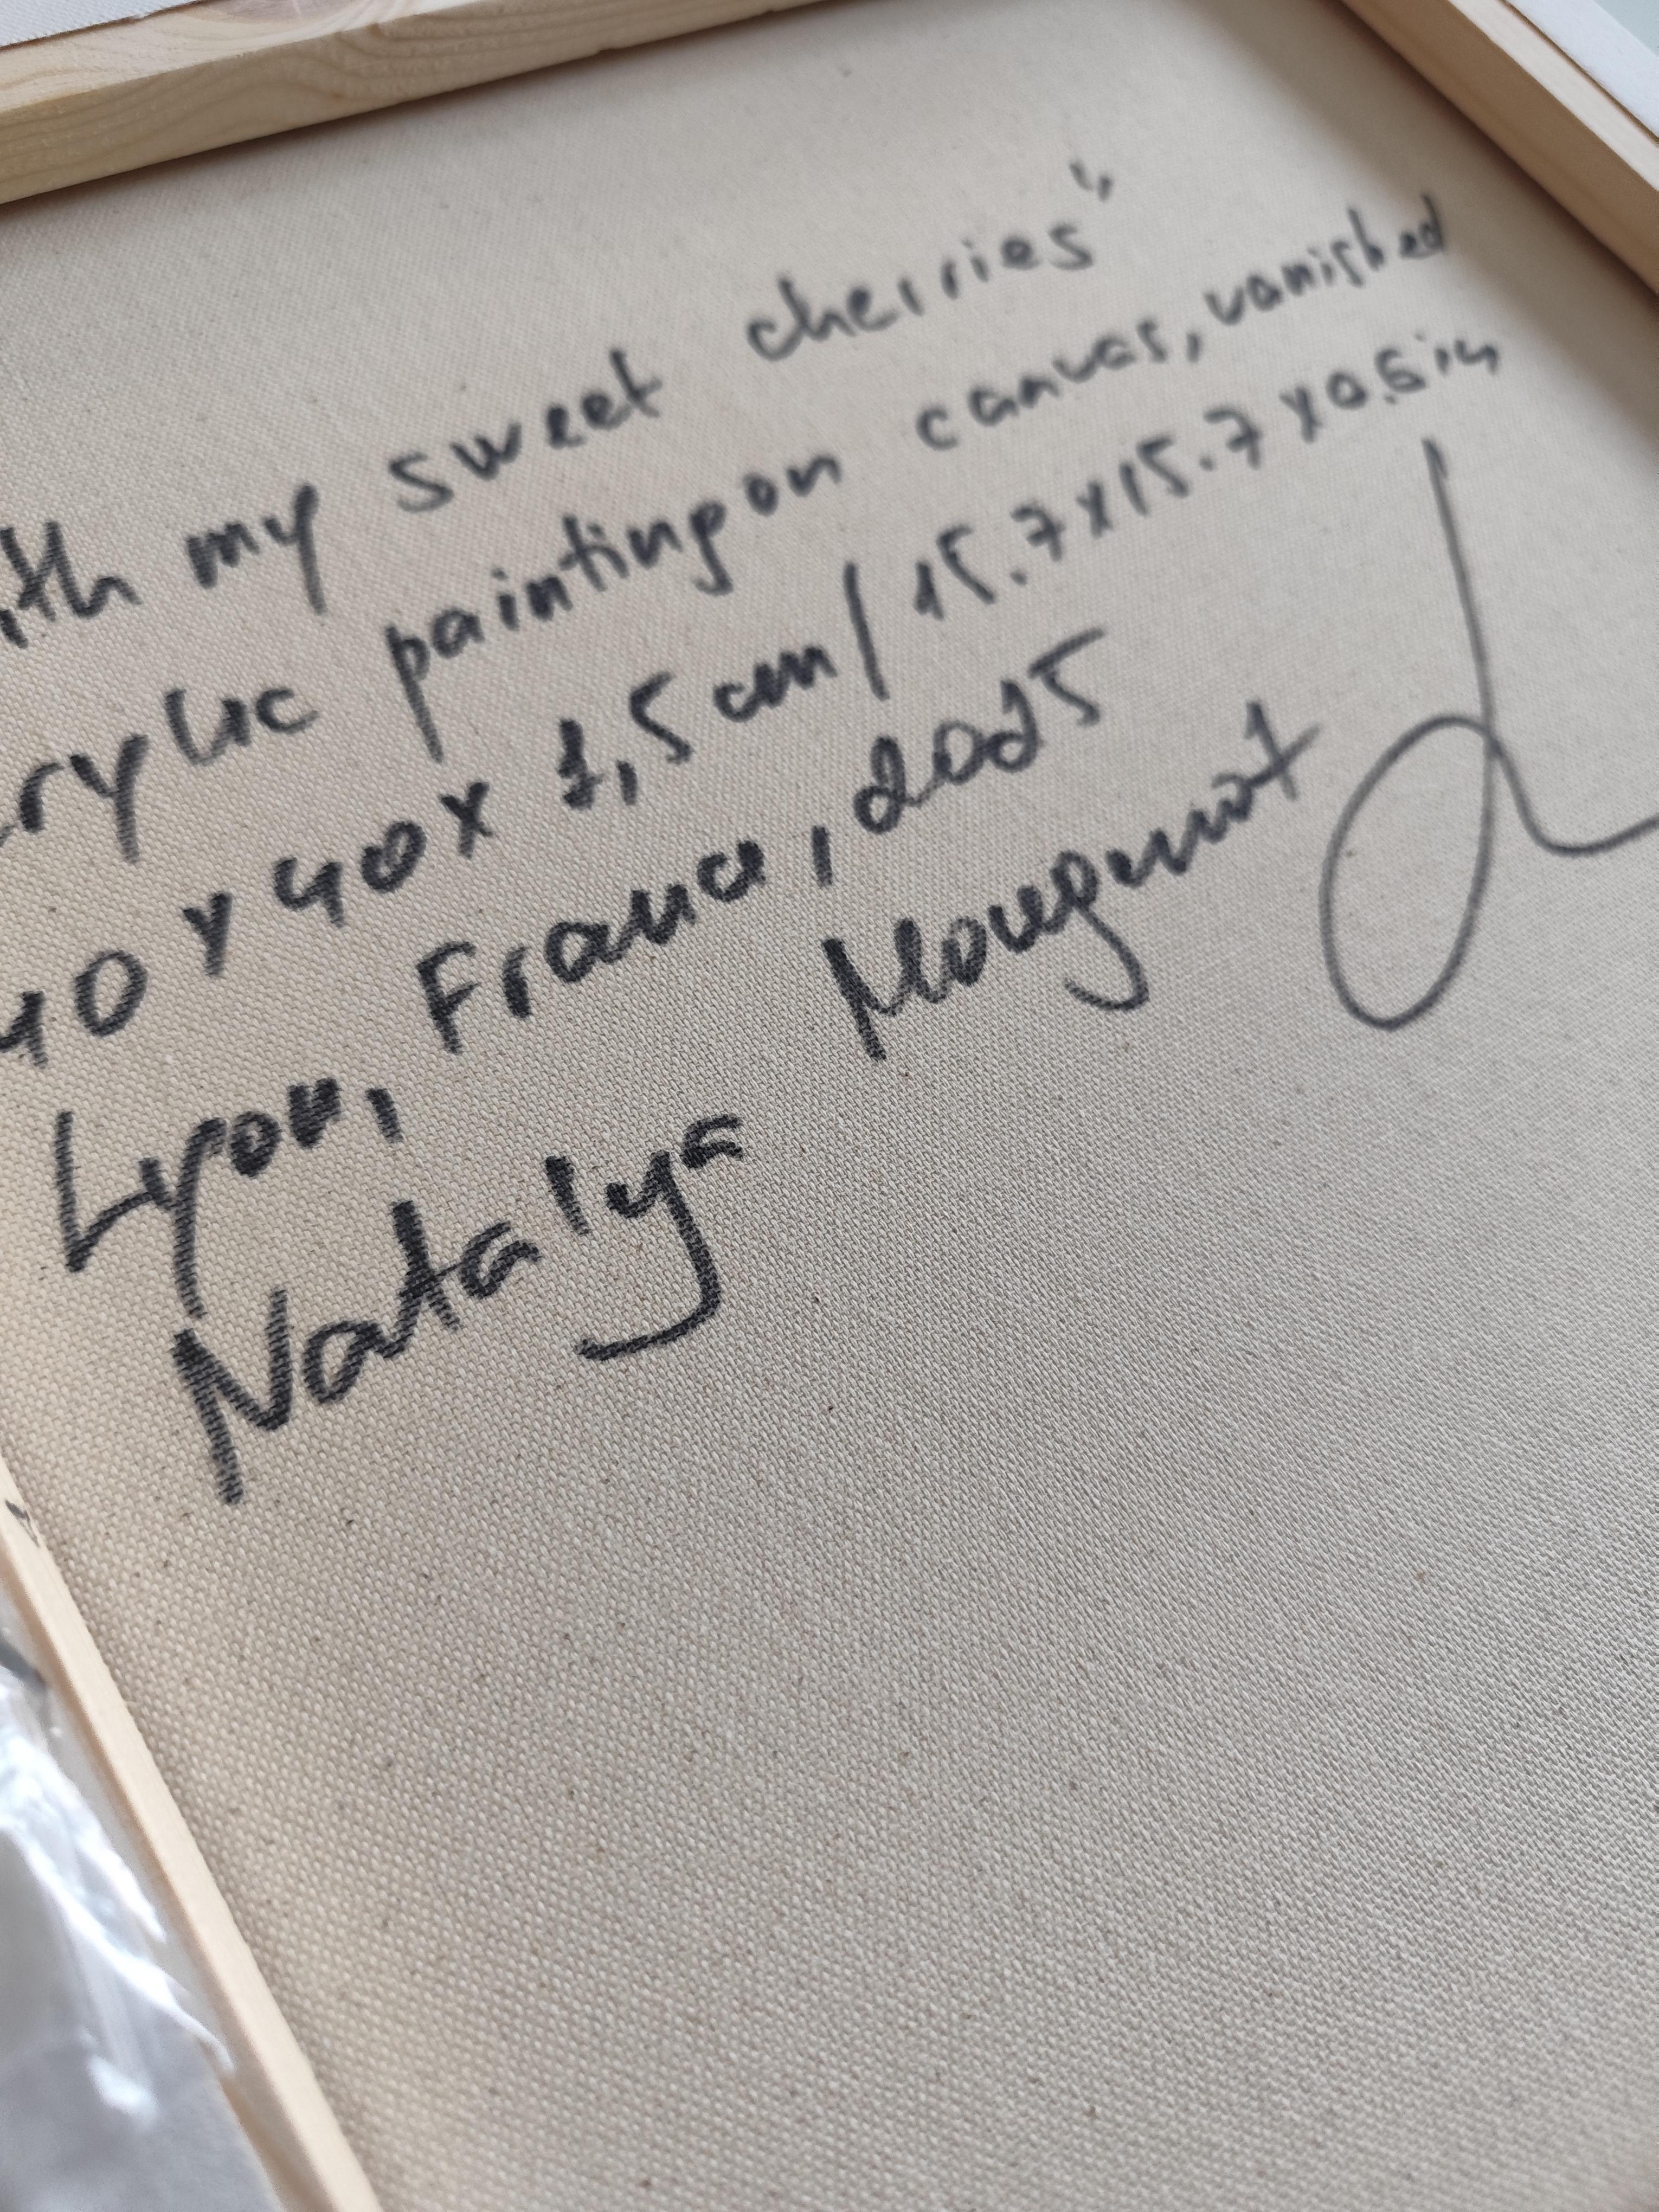 ith my sweet cherries"
crylic painting on canvas, vanished
40 x 40 x 1,5 cm / 15.7 x 15.7 x 0.6 in
Lyon, France, 2025
Natalya Mougenot